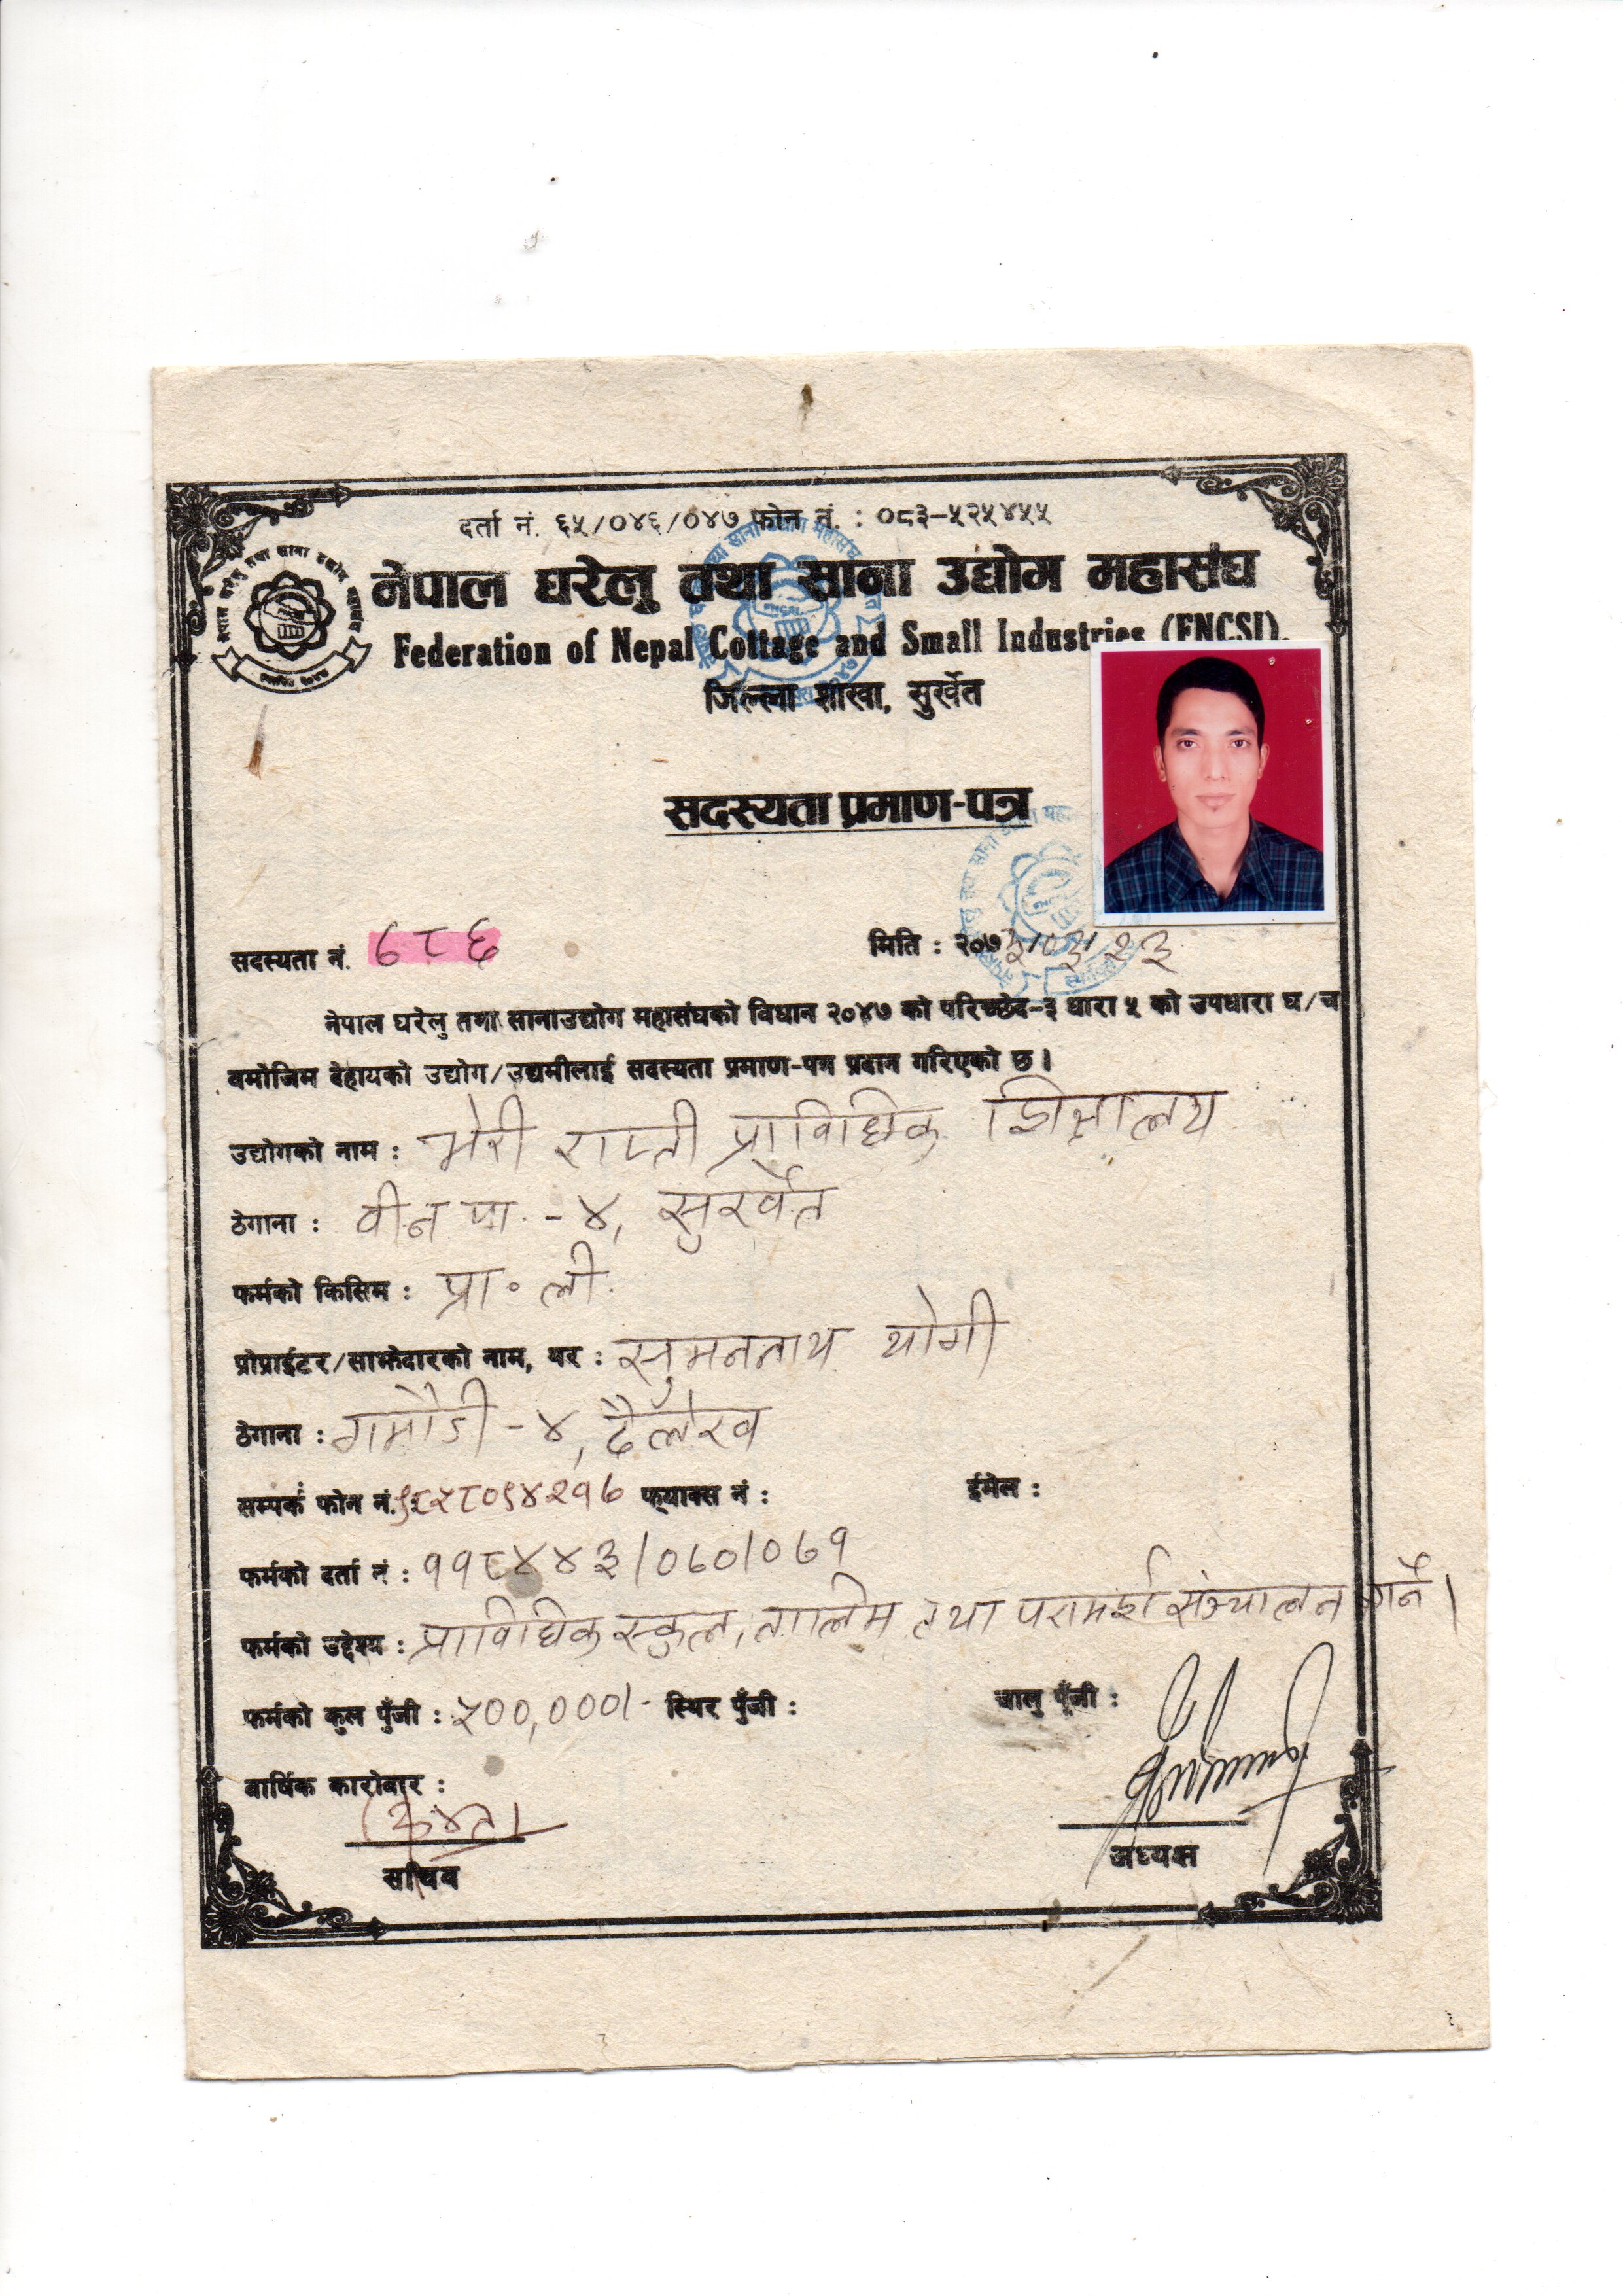 दर्ता नं. ६५/०४६/०४७ फोन नं. : ०८३-५२५४५५
नेपाल घरेलु तथा साना उद्योग महासंघ
Federation of Nepal Cottage and Small Industries (FNCSI)
जिल्ला शाखा, सुर्खेत
सदस्यता प्रमाण-पत्र
सदस्यता नं. ७८६
मिति : २०७३
नेपाल घरेलु तथा सानाउद्योग महासंघको विधान २०४७ को परिच्छेद-३ धारा ५ को उपधारा घ/च
बमोजिम देहायको उद्योग/उद्यमीलाई सदस्यता प्रमाण-पत्र प्रदान गरिएको छ ।
उद्योगको नाम : भेरी राप्ती प्राविधिक शिक्षालय
ठेगाना : वी.न.पा. -४, सुर्खेत
फर्मको किसिम : प्रा॰ ली.
प्रोप्राईटर/साझेदारको नाम, थर : सुमननाथ योगी
ठेगाना : गमौडी -४, दैलेख
सम्पर्क फोन नं. : ९८५८०९४२१७ फ्याक्स नं : ईमेल :
फर्मको दर्ता नं : ११८४४३/०७०/०७१
फर्मको उद्देश्य : प्राविधिक स्कुल, तालिम तथा परामर्श संञ्चालन गर्ने ।
फर्मको कुल पुँजी : ५००,०००/- स्थिर पुँजी : चालु पुँजी :
वार्षिक कारोवार :
सचिव
अध्यक्ष